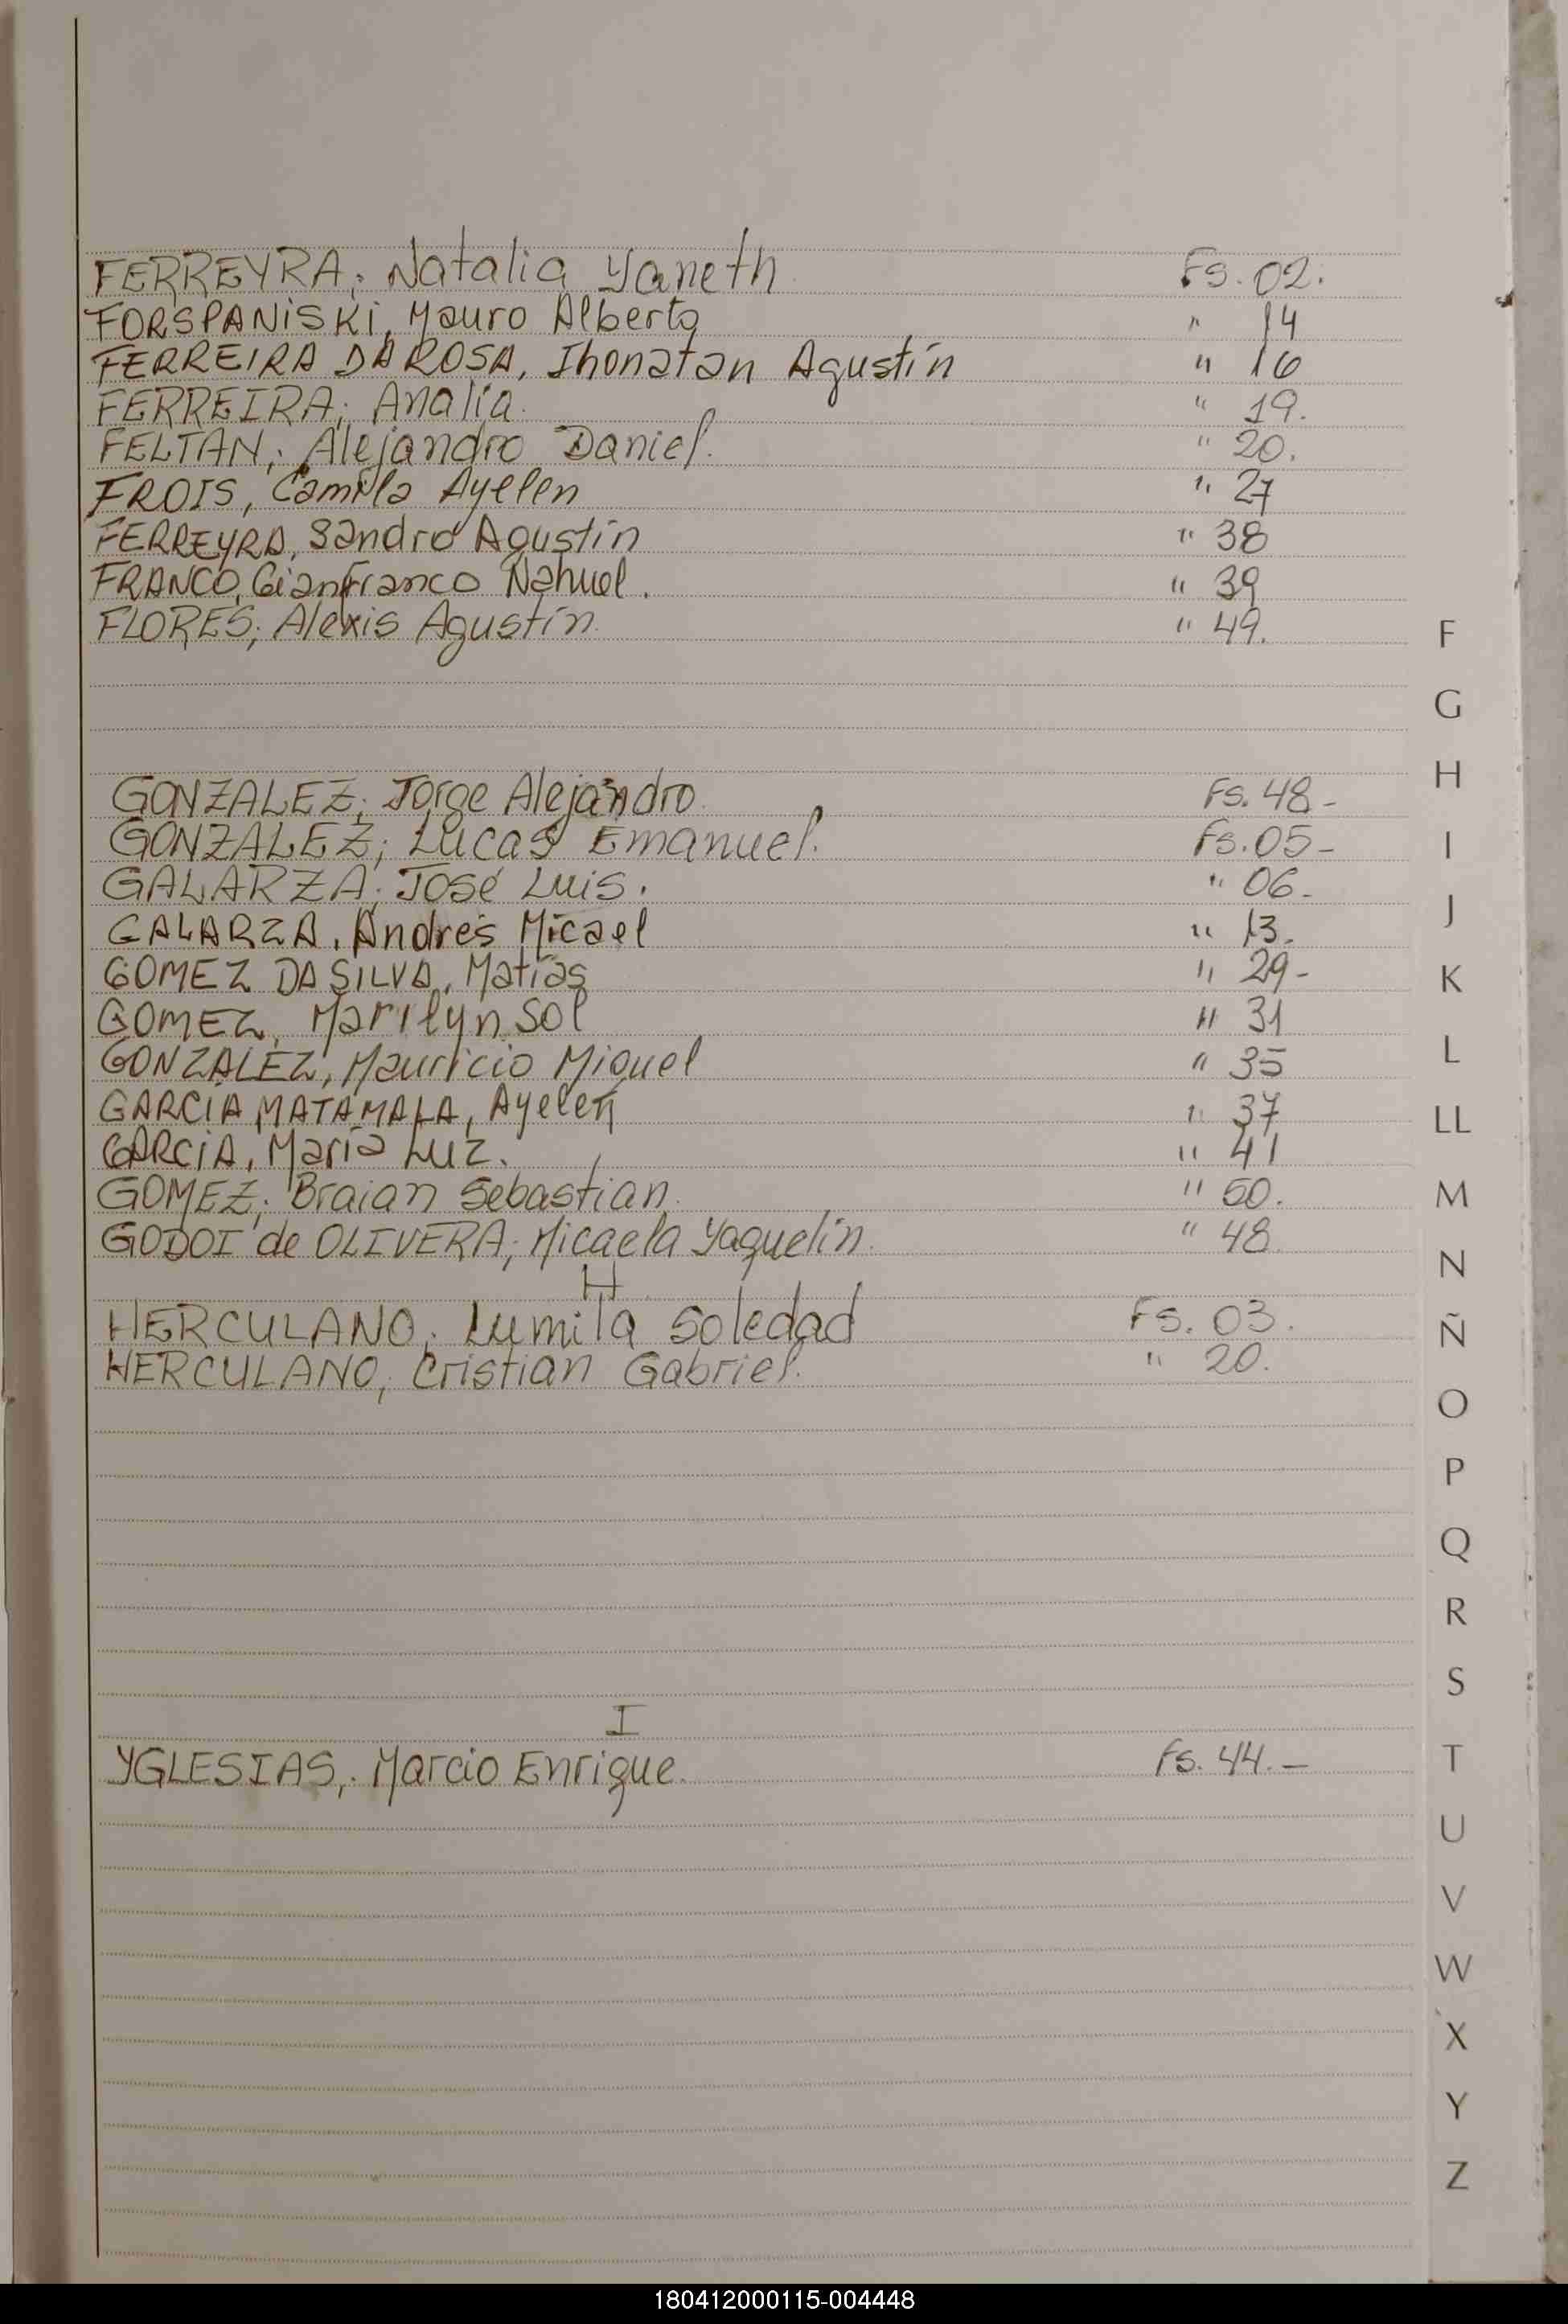 FERREYRA; Natalia Yaneth Fs. 02.
FORSPANiSKi, Mauro Alberto " 14
FERREIRA DA ROSA, Jhonatan Agustín " 16
FERREIRA; Analía. " 19.
FELTAN; Alejandro Daniel. " 20.
FROIS, Camila Ayelen " 27
FERREYRA, Sandro Agustín " 38
FRANCO, GianFranco Nahuel. " 39
FLORES; Alexis Agustín. " 49.
F
G
H
GONZALEZ; Jorge Alejandro. Fs. 48-
GONZALEZ; Lucas Emanuel. Fs. 05-
I
GALARZA; José Luis. " 06-
J
GALARZA, Andrés Micael " 13.
GOMEZ DA SILVA, Matías " 29-
K
GOMEZ, Marilyn Sol " 31
GONZALEZ, Mauricio Miguel " 35
L
GARCíA MATAMALA, Ayelen " 37
LL
GARCiA, María Luz. " 41
GOMEZ; Braian Sebastian. " 50.
M
GODOI de OLIVERA; Micaela Yaquelin. " 48
N
H
HERCULANO; Lumila Soledad Fs. 03.
Ñ
HERCULANO; Cristian Gabriel. " 20.
O
P
Q
R
S
I
YGLESIAS; Marcio Enrique. Fs. 44.-
T
U
V
W
X
Y
Z
180412000115-004448